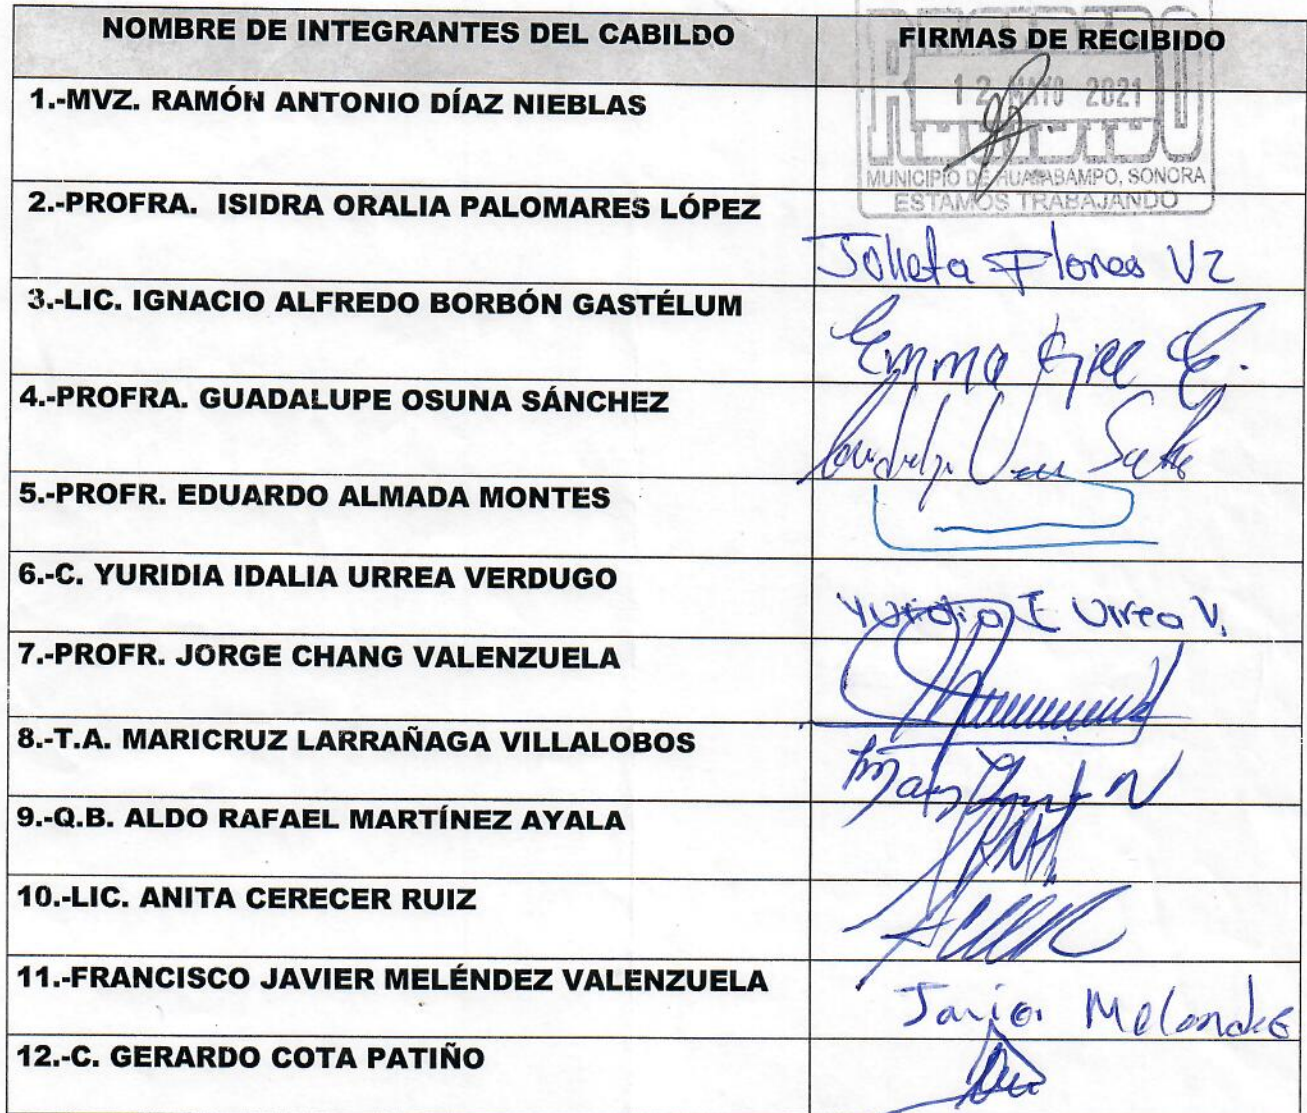 NOMBRE DE INTEGRANTES DEL CABILDO
FIRMAS DE RECIBIDO
RECIBIDO
12 MAYO 2021
MUNICIPIO DE HUATABAMPO, SONORA
ESTAMOS TRABAJANDO
1.-MVZ. RAMÓN ANTONIO DÍAZ NIEBLAS
2.-PROFRA. ISIDRA ORALIA PALOMARES LÓPEZ
Flores Vz
3.-LIC. IGNACIO ALFREDO BORBÓN GASTÉLUM
Emma
4.-PROFRA. GUADALUPE OSUNA SÁNCHEZ
5.-PROFR. EDUARDO ALMADA MONTES
6.-C. YURIDIA IDALIA URREA VERDUGO
Yuridia I Urrea V.
7.-PROFR. JORGE CHANG VALENZUELA
8.-T.A. MARICRUZ LARRAÑAGA VILLALOBOS
9.-Q.B. ALDO RAFAEL MARTÍNEZ AYALA
10.-LIC. ANITA CERECER RUIZ
11.-FRANCISCO JAVIER MELÉNDEZ VALENZUELA
Javier Melendez
12.-C. GERARDO COTA PATIÑO